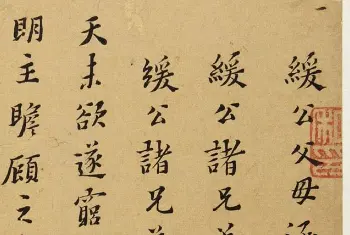 緩公父母
緩公諸兄
緩公諸兄
天未欲遂窮
明主瞻顧之